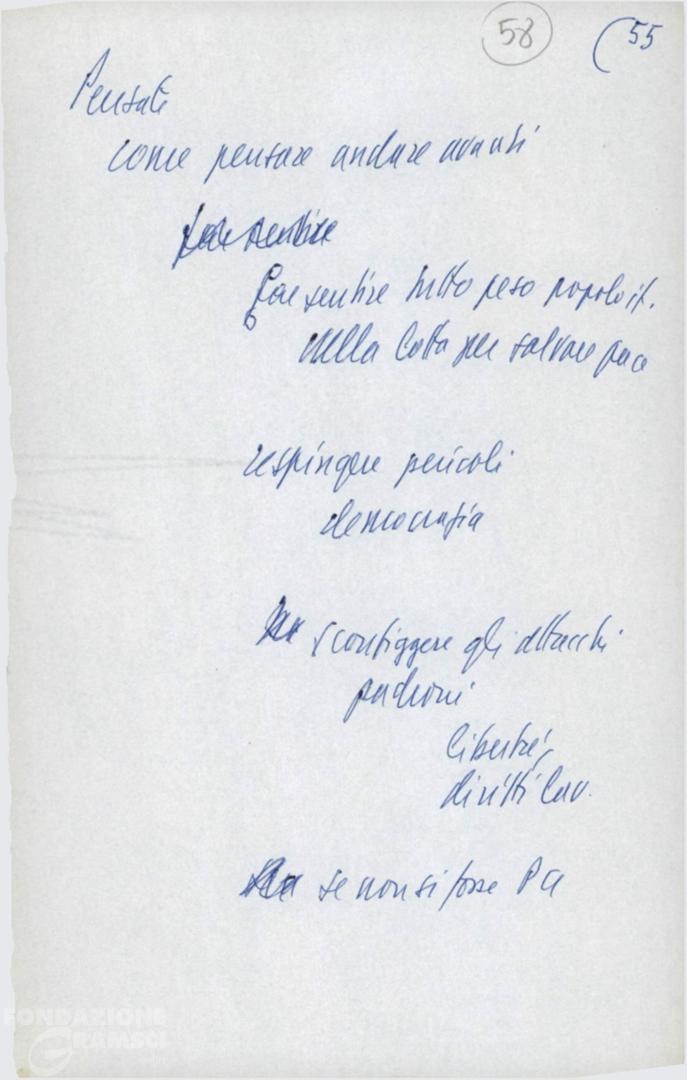 58
(55
Pensate
come pensare andare avanti
far sentire
far sentire tutto peso popolo it.
nella lotta per salvare pace
respingere pericoli
democrazia
sconfiggere gli attacchi
padroni
libertà,
diritti lav.
se non si fosse PCI
FONDAZIONE
GRAMSCI